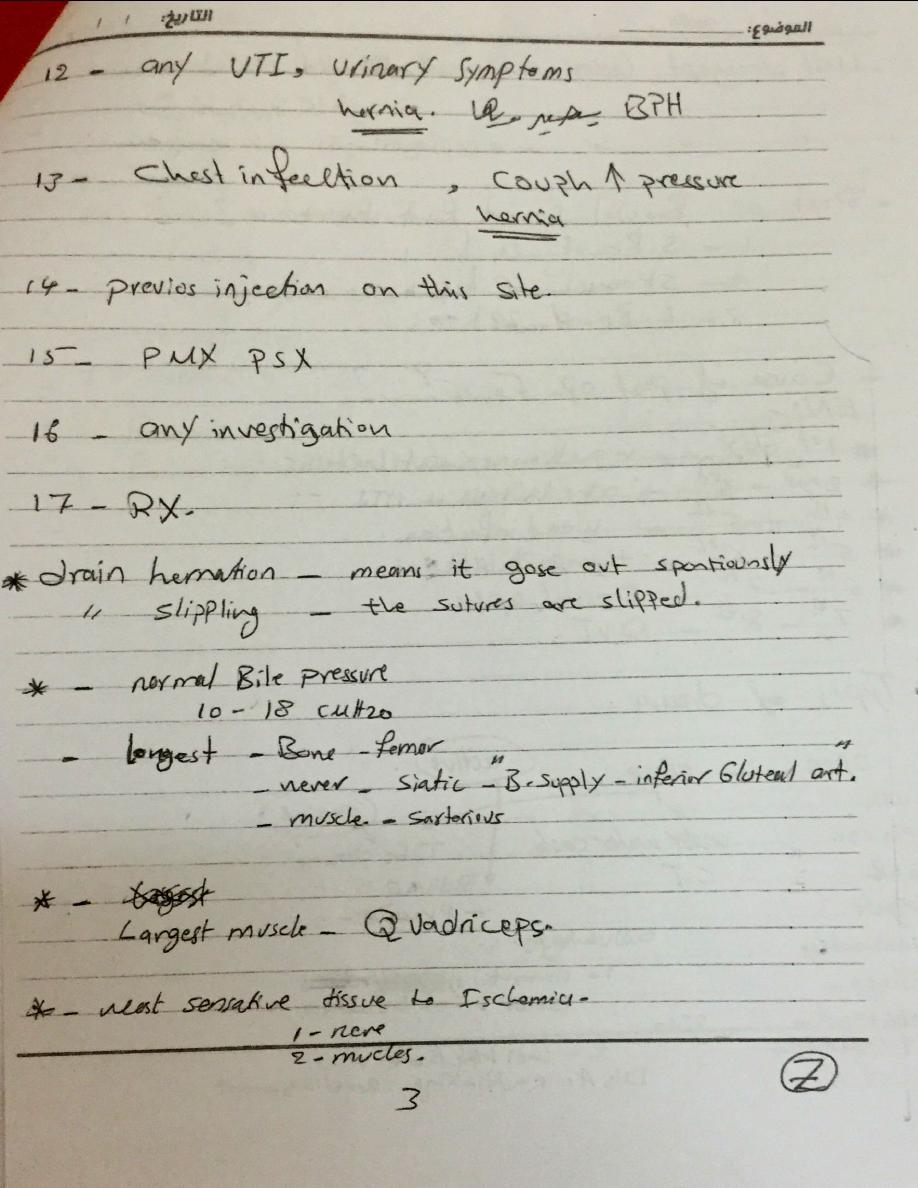 الموضوع: التاريخ: / /
12 - any UTI, Urinary Symptoms
hernia. BPH
13 - Chest infecltion , Couph ↑ pressure
hernia
14 - previos injection on this site.
15 - PMX PSX
16 - any investigation
17 - RX.
* drain hernation - means it gose out spontiounsly
" slippling - the sutures are slipped.
* - normal Bile pressure
10 - 18 cmH20
- longest - Bone - femor
- never - siatic - "B. supply - inferior Gluteal art."
- muscle - Sartorious
* -
Largest muscle - Quadriceps.
* - most sensative tissue to Ischemia -
1 - nerve
2 - mucles.
3
7